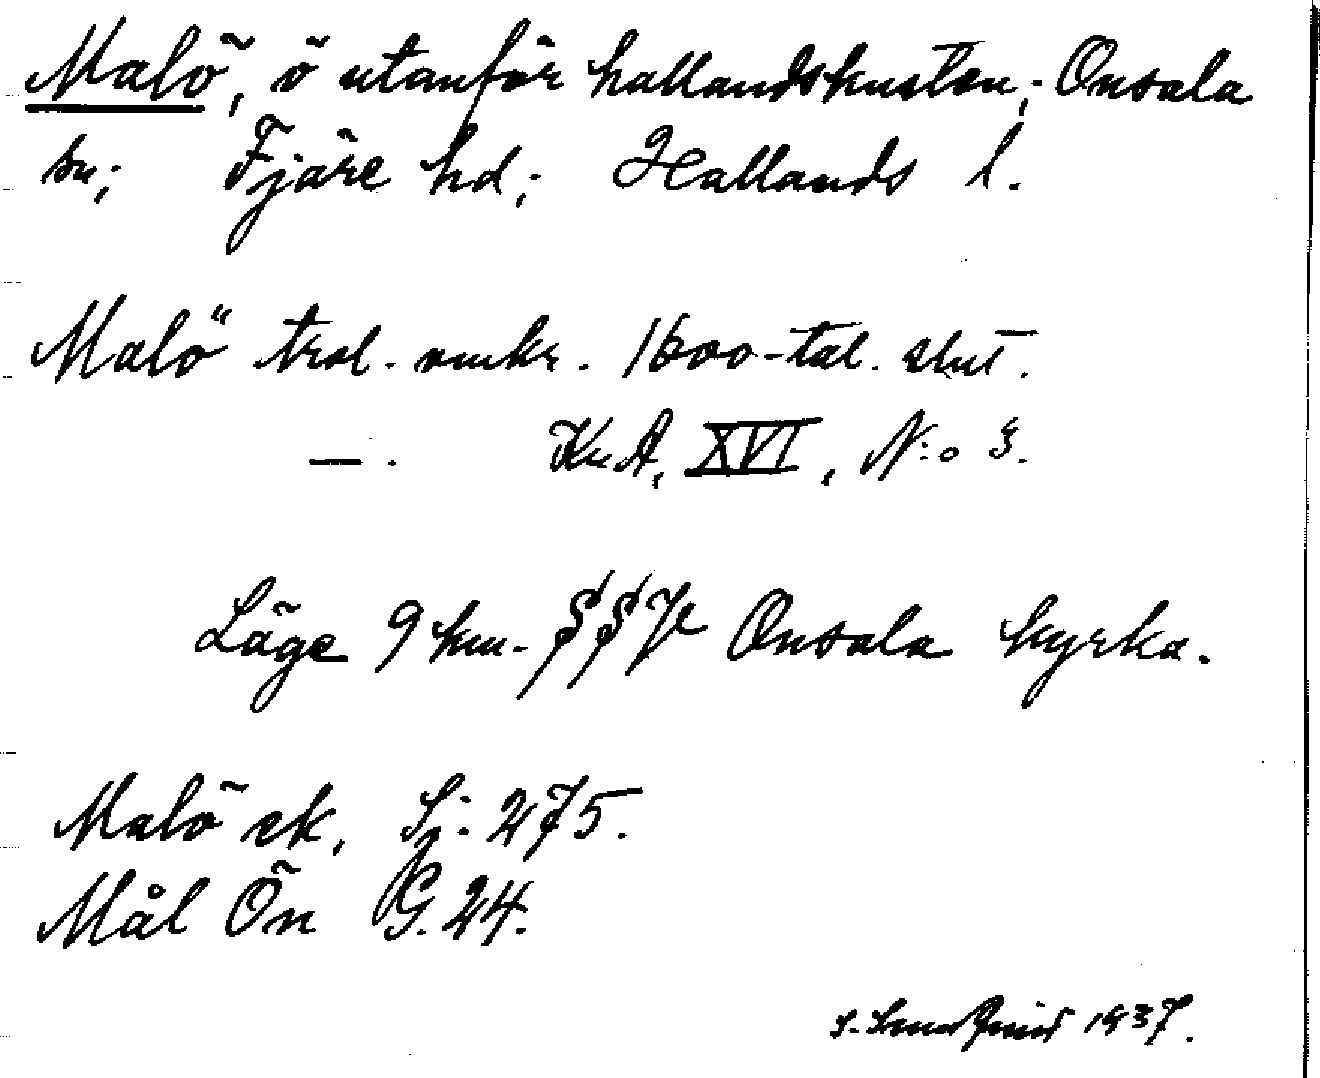 Malö, ö utanför hallandskusten; Onsala
sn; Fjäre hd; Hallands l.
Malö trol. omkr. 1600-tal. slut.
—. KrA, XVI, N:o 3.
Läge 9 km. SSV Onsala kyrka.
Malö ek, Sj. 275.
Mål Ön G. 24.
S. 1937.